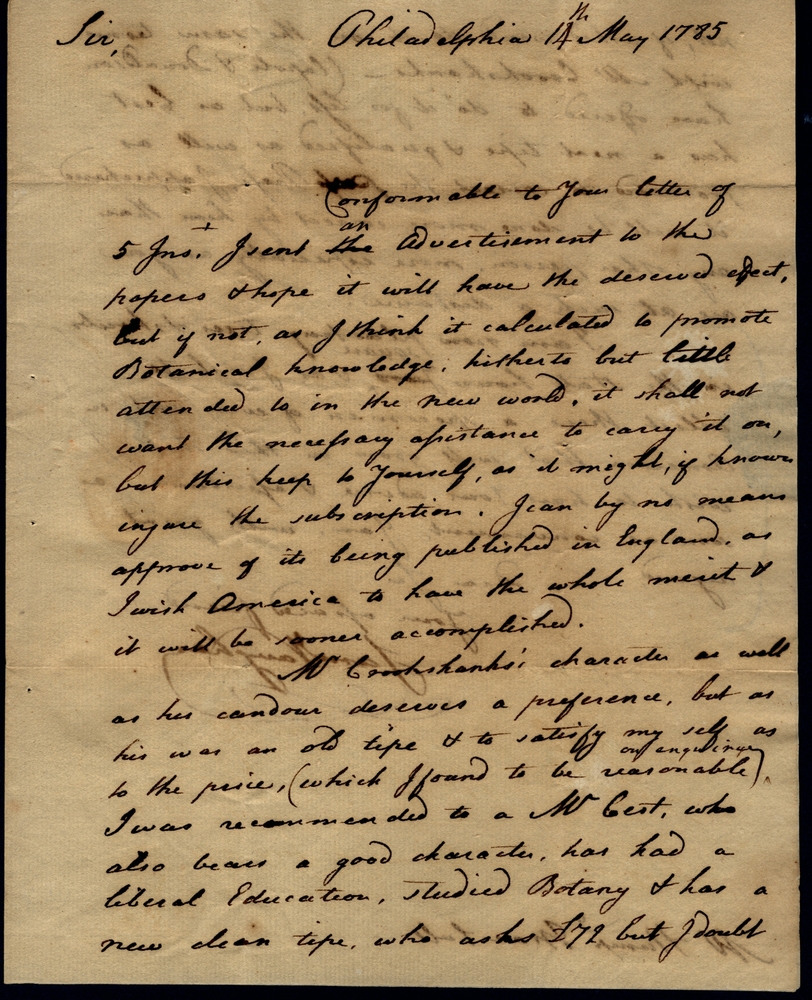 Sir, Philadelphia 14th May 1785
Conformable to Your letter of
5 Inst. I sent the an Advertisement to the
papers & hope it will have the deserved efect,
but if not, as I think it calculated to promote
Botanical knowledge, hitherto but little
attended to in the new world, it shall not
want the necessary assistance to carry it on,
but this keep to Yourself, as it might, if known
injure the subscription. I can by no means
approve of its being published in England, as
I wish America to have the whole merit &
it will be sooner accomplished.
Mr Crookshanks's character as well
as his candour deserves a preference, but as
his was an old tipe & to satisfy my self as
to the price, (which I found to be on enquiring reasonable),
I was recommended to a Mr Cest, who
also bears a good character, has had a
liberal Education, studied Botany & has a
new clean tipe, who asks £72 but I doubt